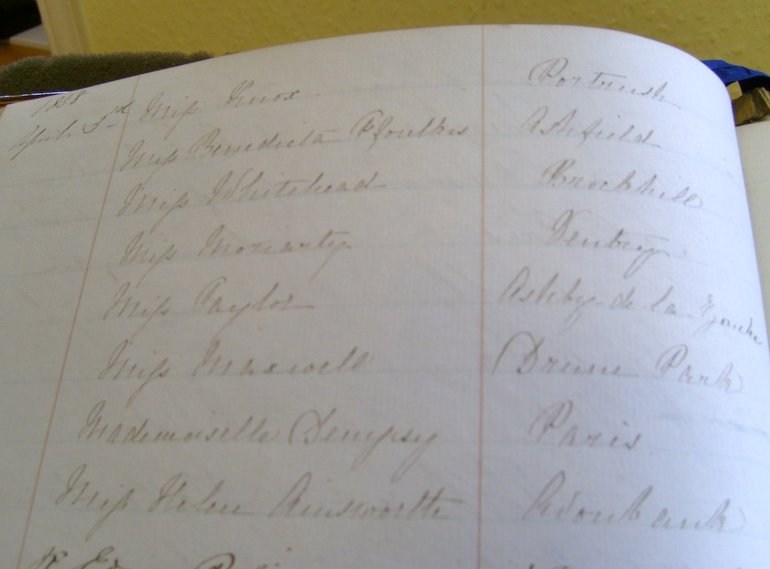 1868
April 5th Miss Knox Portrush
Miss Benedicta Ffoulkes Ashfield
Miss Whitehead Brookhill
Miss Moriarty Ventry
Miss Taylor Ashby-de la Zouche
Miss Maxwell Drum Park
Mademoiselle Dempsy Paris
Miss Helen Ainsworth